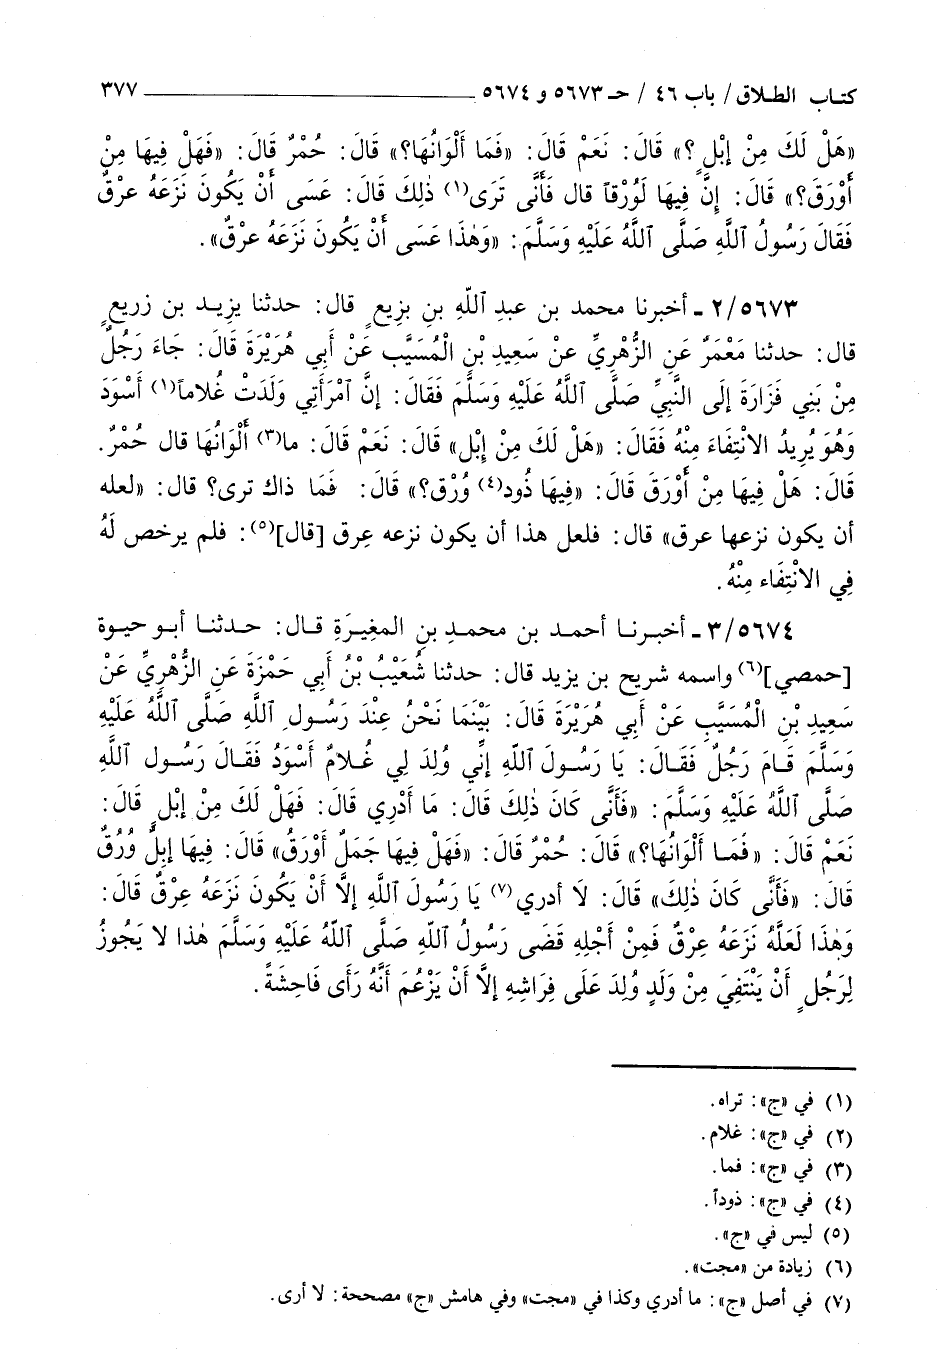 كتاب الطلاق / باب ٤٦ / حـ ٥٦٧٣ و ٥٦٧٤ ٣٧٧
«هَلْ لَكَ مِنْ إِبْلٍ؟» قَالَ: نَعَمْ قَالَ: «فَمَا أَلْوَانُهَا؟» قَالَ: حُمْرٌ قَالَ: «فَهَلْ فِيهَا مِنْ
أَوْرَقَ؟» قَالَ: إِنَّ فِيهَا لَوُرْقاً قال فَأَنَّى تَرَى(١) ذٰلِكَ قَالَ: عَسَى أَنْ يَكُونَ نَزَعَهُ عرْقٌ
فَقَالَ رَسُولُ ٱللَّهِ صَلَّى ٱللَّهُ عَلَيْهِ وَسَلَّمَ: «وَهٰذَا عَسَى أَنْ يَكُونَ نَزَعَهُ عرْقٌ».
٢/٥٦٧٣ ـ أخبرنا محمد بن عبدِ ٱللَّهِ بنِ بزِيعٍ قال: حدثنا يزيد بن زريعٍ
قال: حدثنا مَعْمَرٌ عَنِ الزُّهْرِيِّ عنْ سَعِيدِ بْنِ الْمُسَيَّبِ عَنْ أَبِي هُرَيْرَةَ قَالَ: جَاءَ رَجُلٌ
مِنْ بَنِي فَزَارَةَ إِلَى النَّبِيِّ صَلَّى ٱللَّهُ عَلَيْهِ وَسَلَّمَ فَقَالَ: إِنَّ ٱمْرَأَتِي وَلَدَتْ غُلاماً(١) أَسْوَدَ
وَهُوَ يُرِيدُ الانْتِفَاءَ مِنْهُ فَقَالَ: «هَلْ لَكَ مِنْ إِبْلٍ» قَالَ: نَعَمْ قَالَ: ما(٣) أَلْوَانُهَا قال حُمْرٌ.
قَالَ: هَلْ فِيهَا مِنْ أَوْرَقَ قَالَ: «فِيهَا ذُود(٤) وُرْق؟» قَالَ: فَمَا ذاك ترى؟ قال: «لعله
أن يكون نزعها عرق» قال: فلعل هذا أن يكون نزعه عِرق [قال](٥): فلم يرخص لَهُ
فِي الانْتِفَاء مِنْهُ.
٣/٥٦٧٤ ـ أخبرنا أحمد بن محمدِ بنِ المغِيرَةِ قال: حدثنا أبو حيوة
[حمصي](٦) واسمه شريح بن يزيد قال: حدثنا شُعَيْبُ بْنُ أَبِي حَمْزَةَ عَنِ الزُّهْرِيِّ عَنْ
سَعِيدِ بْنِ الْمُسَيَّبِ عَنْ أَبِي هُرَيْرَةَ قَالَ: بَيْنَمَا نَحْنُ عِنْدَ رَسُولِ ٱللَّهِ صَلَّى ٱللَّهُ عَلَيْهِ
وَسَلَّمَ قَامَ رَجُلٌ فَقَالَ: يَا رَسُولَ ٱللَّهِ إِنِّي وُلِدَ لِي غُلامٌ أَسْوَدُ فَقَالَ رَسُولُ ٱللَّهِ
صَلَّى ٱللَّهُ عَلَيْهِ وَسَلَّمَ: «فَأَنَّى كَانَ ذٰلِكَ قَالَ: مَا أَدْرِي قَالَ: فَهَلْ لَكَ مِنْ إِبْلٍ قَالَ:
نَعَمْ قَالَ: «فَمَا أَلْوَانُهَا؟» قَالَ: حُمْرٌ قَالَ: «فَهَلْ فِيهَا جَمَلٌ أَوْرَقُ» قَالَ: فِيهَا إِبلٌ وُرُقٌ
قَالَ: «فَأَنَّى كَانَ ذٰلِكَ» قَالَ: لَا أدري(٧) يَا رَسُولَ ٱللَّهِ إِلَّا أَنْ يَكُونَ نَزَعَهُ عِرْقٌ قَالَ:
وَهٰذَا لَعَلَّهُ نَزَعَهُ عِرْقٌ فَمِنْ أَجْلِهِ قَضَى رَسُولُ ٱللَّهِ صَلَّى ٱللَّهُ عَلَيْهِ وَسَلَّمَ هٰذا لا يَجُوزُ
لِرَجُلٍ أَنْ يَنْتَفِيَ مِنْ وَلَدٍ وُلِدَ عَلَى فِرَاشِهِ إِلَّا أَنْ يَزْعُمَ أَنَّهُ رَأَى فَاحِشَةً.
(١) في «ج»: تراه.
(٢) في «ج»: غلام.
(٣) في «ج»: فما.
(٤) في «ج»: ذوداً.
(٥) ليس في «ج».
(٦) زيادة من «مجت».
(٧) في أصل «ج»: ما أدري وكذا في «مجت» وفي هامش «ج» مصححة: لا أرى.